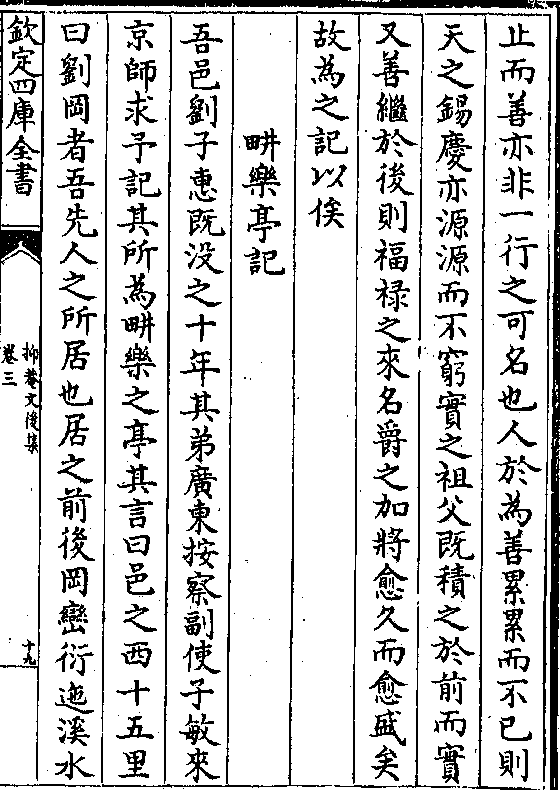 止而善亦非一行之可名也人於為善累累而不已則
天之錫慶亦源源而不窮實之祖父既積之於前而實
又善繼於後則福祿之來名爵之加將愈久而愈盛矣
故為之記以俟
畊樂亭記
吾邑劉子惠既没之十年其弟廣東按察副使子敏來
京師求予記其所為畊樂之亭其言曰邑之西十五里
曰劉岡者吾先人之所居也居之前後岡巒衍迤溪水
欽定四庫全書
抑菴文後集
卷三
十九